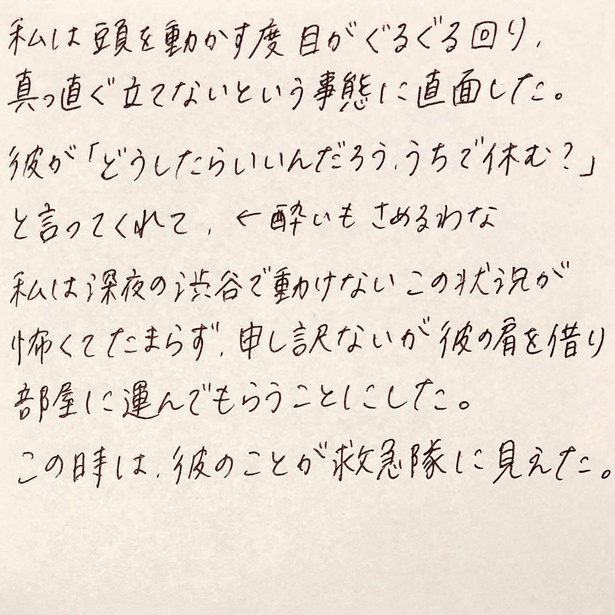 私は頭を動かす度目がぐるぐる回り、
真っ直ぐ立てないという事態に直面した。
彼が「どうしたらいいんだろう、うちで休む？」
と言ってくれて、←酔いもさめるわな
私は深夜の渋谷で動けないこの状況が
怖くてたまらず、申し訳ないが彼の肩を借り
部屋に運んでもらうことにした。
この時は、彼のことが救急隊に見えた。